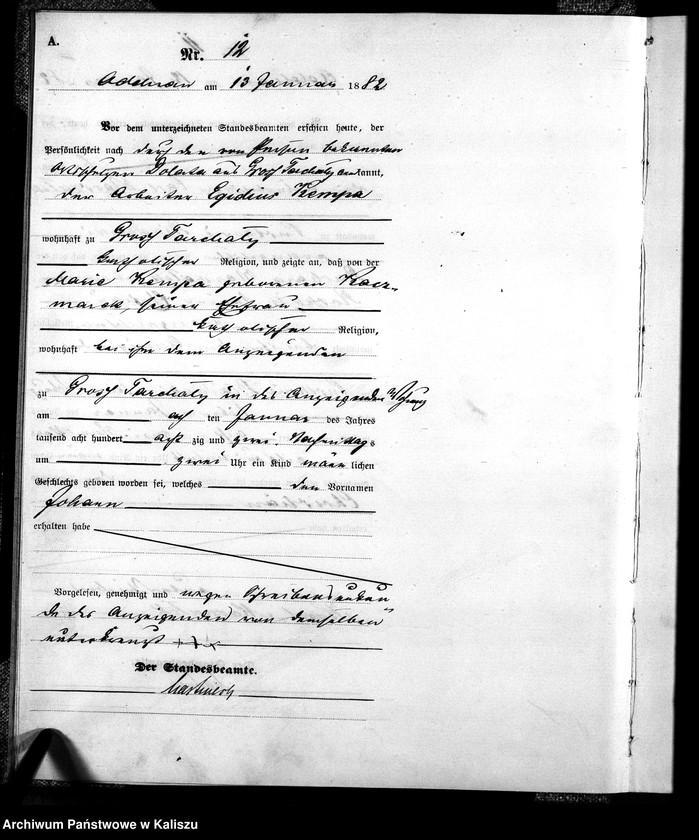 A.
Nr. 12
Adelnau am 13 Januar 1882
Vor dem unterzeichneten Standesbeamten erschien heute, der
Persönlichkeit nach durch den von Person bekannten
Dolata aus Grosz Tarchaly erkannt,
der Arbeiter Egidius Kempa
wohnhaft zu Grosz Tarchaly
katholischer Religion, und zeigte an, daß von der
Marie Kempa geborenen Kacz-
marek, seiner Ehefrau
katholischer Religion,
wohnhaft bei ihm dem Anzeigenden
zu Grosz Tarchaly in des Anzeigenden Wohnung
am acht ten Januar des Jahres
tausend acht hundert acht zig und zwei, Nachmittags
um zwei Uhr ein Kind männlichen
Geschlechts geboren worden sei, welches den Vornamen
Johann
erhalten habe
Vorgelesen, genehmigt und wegen Schreibensunkun-
de des Anzeigenden von demselben
unterkreuzt +++
Der Standesbeamte.
Archiwum Państwowe w Kaliszu